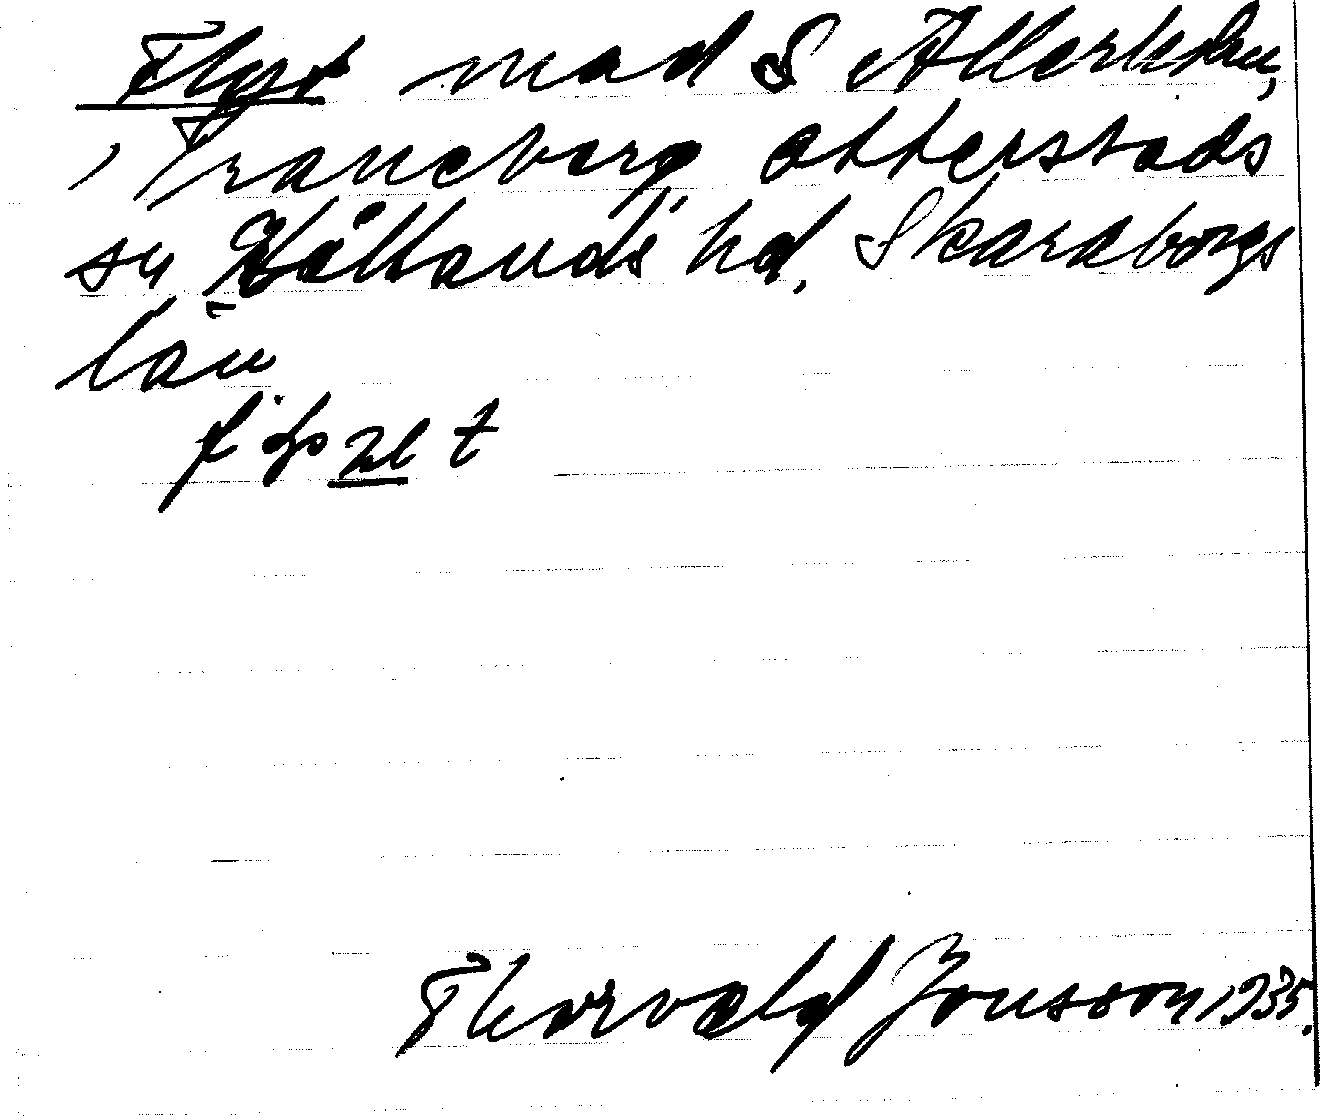 Flyt mad S Allerkskm,
i Traneberg, Otterstads
sn Kållands hd, Skaraborgs
län
Thorvald Jonsson 1935.